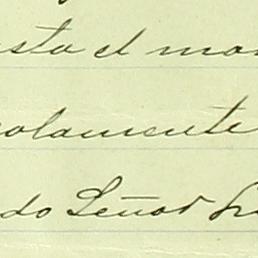 sta el mo
solamente
do Señor